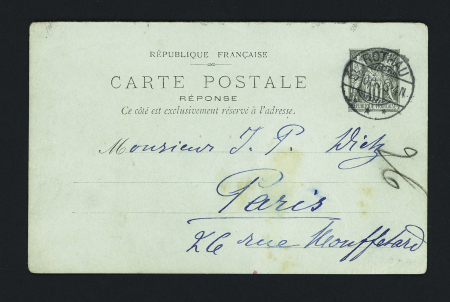 RÉPUBLIQUE FRANÇAISE
CARTE POSTALE
RÉPONSE
Ce côté est exclusivement réservé à l'adresse.
ROTHAU
10
Monsieur J. P. Dietz
Paris
26 rue Mouffetard
26